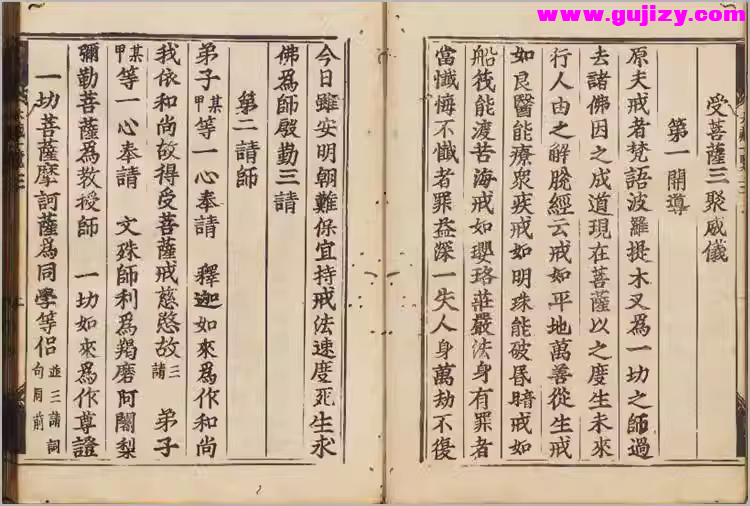 www.gujizy.com
受菩薩三聚威儀
第一開導
原夫戒者梵語波羅提木叉為一切之師過
去諸佛因之成道現在菩薩以之度生未來
行人由之解脫經云戒如平地萬善從生戒
如良醫能療衆疾戒如明珠能破昬暗戒如
船筏能渡苦海戒如瓔珞莊嚴法身有罪者
當懺悔不懺者罪益深一失人身萬劫不復
今日雖安明朝難保宜持戒法速度死生求
佛為師殷勤三請
第二請師
弟子某甲等一心奉請 釋迦如來為作和尚
我依和尚故得受菩薩戒慈愍故三請 弟子
某甲等一心奉請 文殊師利為羯磨阿闍梨
彌勒菩薩為教授師 一切如來為作尊證
一切菩薩摩訶薩為同學等侶並三請詞句同前